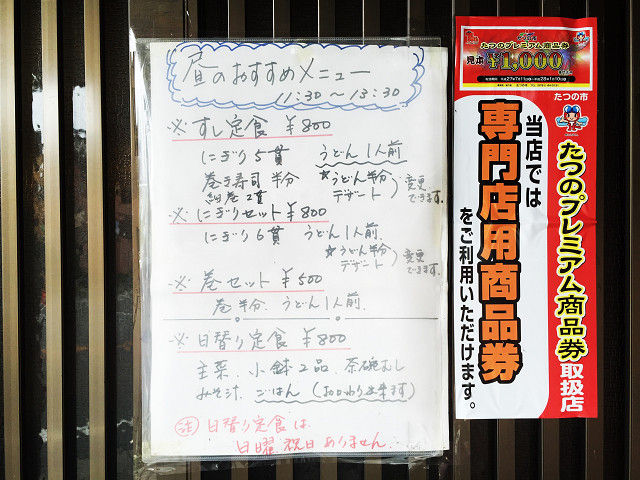 昼のおすすめメニュー
11:30〜13:30
※ すし定食 ¥800
にぎり5貫 うどん1人前
巻き寿司 半分 ☆うどん半分
細巻2貫 デザート
変更できます。
※ にぎりセット ¥800
にぎり6貫 うどん1人前.
☆うどん半分
デザート
変更できます.
※ 巻セット ¥500
巻半分. うどん1人前.
※ 日替り定食 ¥800
主菜. 小鉢2品. 茶碗むし
みそ汁. ごはん (おかわり出来ます)
注 日替り定食は
日曜.祝日ありません.
たつのプレミアム商品券
見本 ¥1,000
たつの市
たつのプレミアム商品券 取扱店
当店では
専門店用商品券
をご利用いただけます。